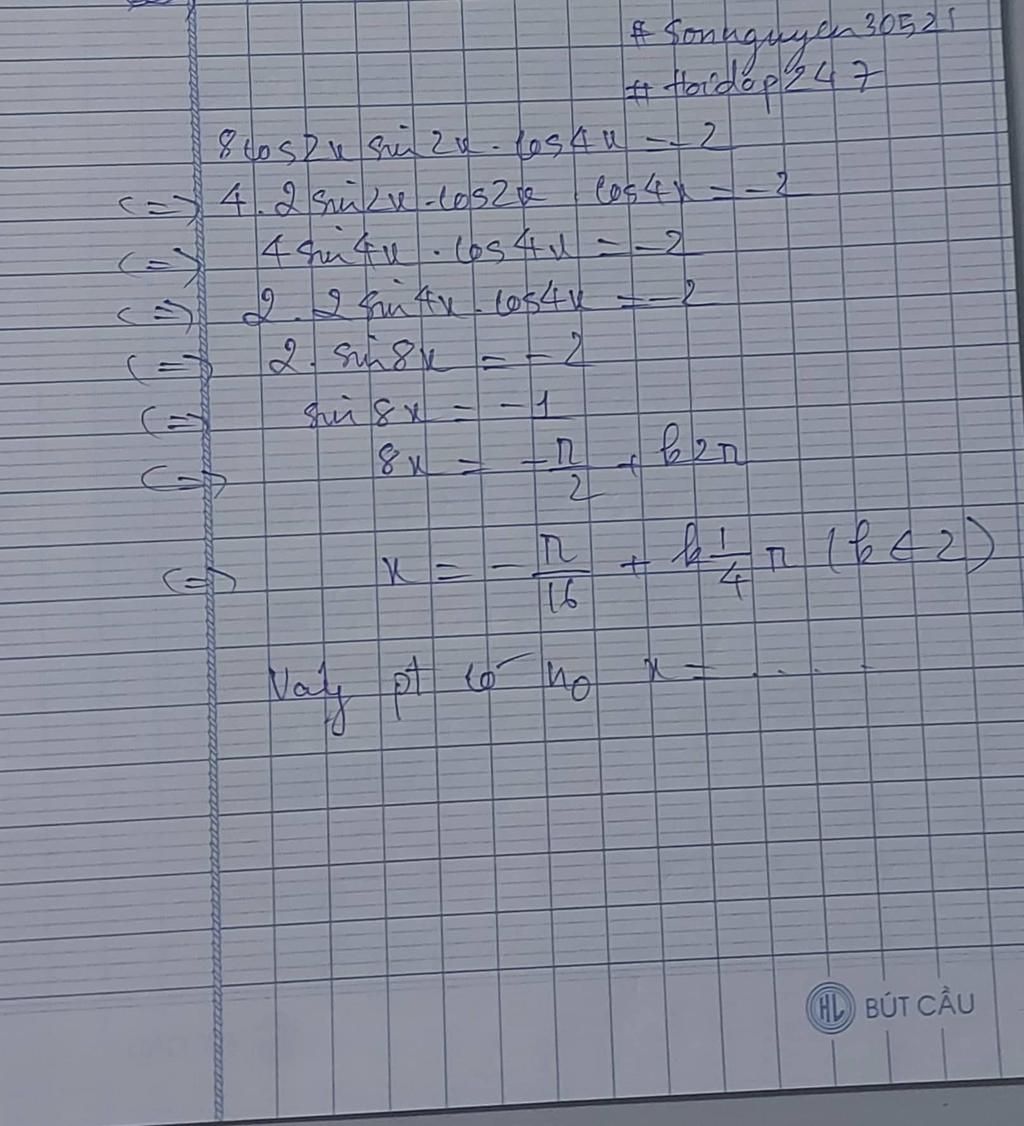 # Sonnguyen30521
# Hoidap247
8cos2x sin2x . cos4x = -2
<=> 4 . 2sin2x . cos2x . cos4x = -2
<=> 4sin4x . cos4x = -2
<=> 2 . 2sin4x . cos4x = -2
<=> 2 . sin8x = -2
<=> sin8x = -1
<=> 8x = -π/2 + k2π
<=> x = -π/16 + k 1/4 π (k ∈ Z)
Vậy pt có no x = ....
HL BÚT CẦU